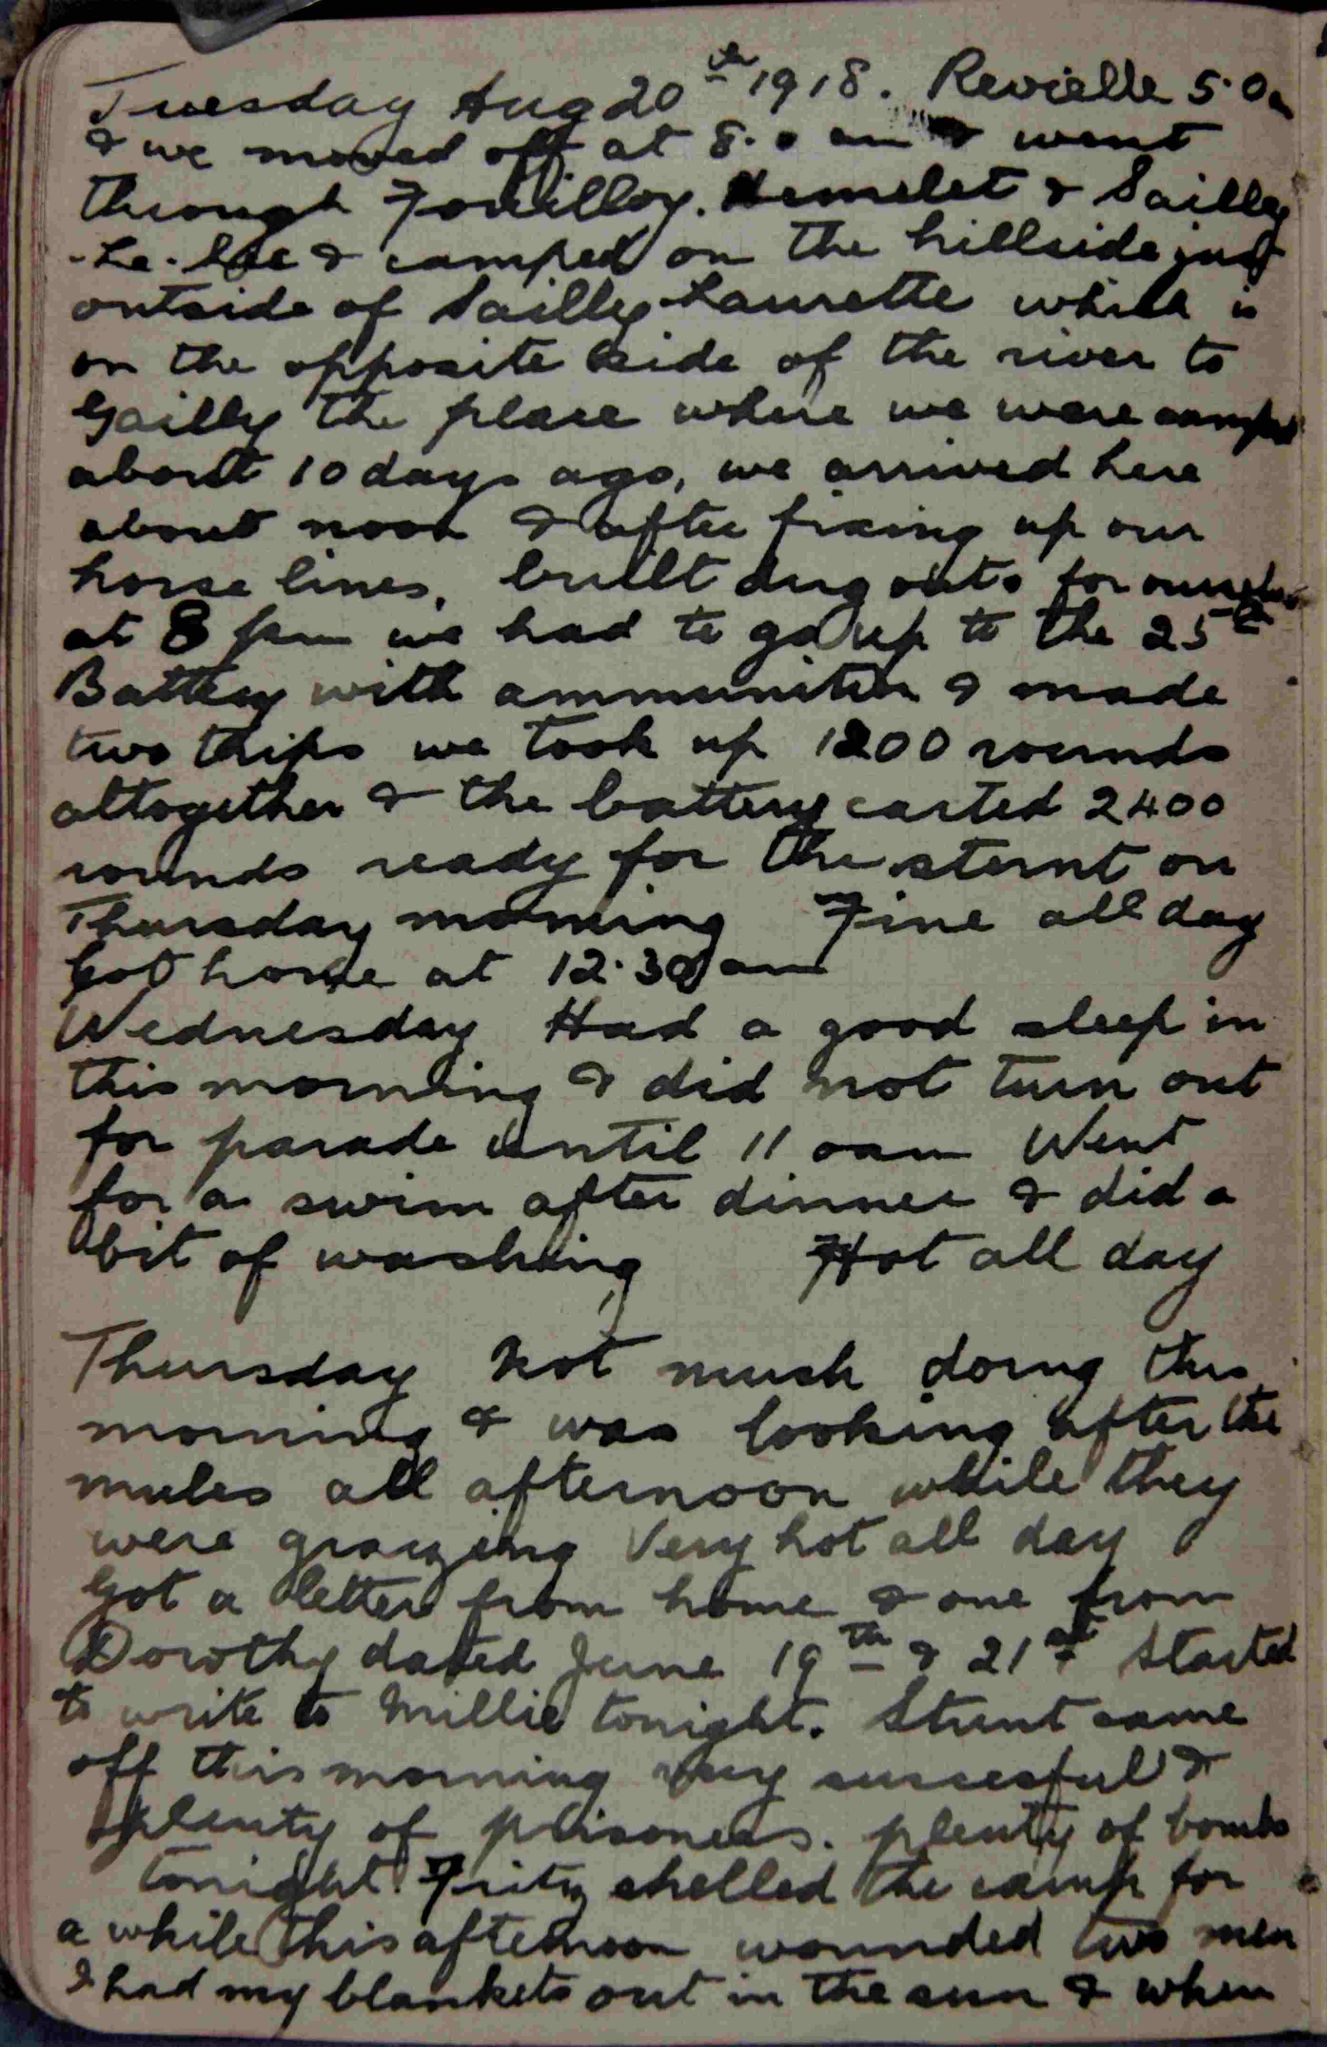 Tuesday Aug 20th 1918. Revielle 5.0 am
& we moved off at 8.0 am & went
through Fouilloy. Hamelet & Sailley
-Le-Sec & camped on the hillside just
outside of Sailley-Laurette which is
on the opposite side of the river to
Gailly the place where we were camped
about 10 days ago, we arrived here
about noon & after fixing up our
horse lines, built dug outs for ourselves
at 8 pm we had to go up to the 25th
Battery with ammunition & made
two trips we took up 1200 rounds
altogether & the battery carted 2400
rounds ready for the stunt on
Thursday morning Fine all day
Got home at 12.30 am
Wednesday Had a good sleep in
this morning & did not turn out
for parade until 11 am Went
for a swim after dinner & did a
bit of washing Hot all day
Thursday Not much doing this
morning & was looking after the
mules all afternoon while they
were grazing Very hot all day
Got a letter from home & one from
Dorothy dated June 19th & 21st Started
to write to Millie tonight. Stunt came
off this morning very succesful &
plenty of prisoners. plenty of bombs
tonight. Fritz shelled the camp for
a while this afternoon wounded two men
I had my blankets out in the sun & when